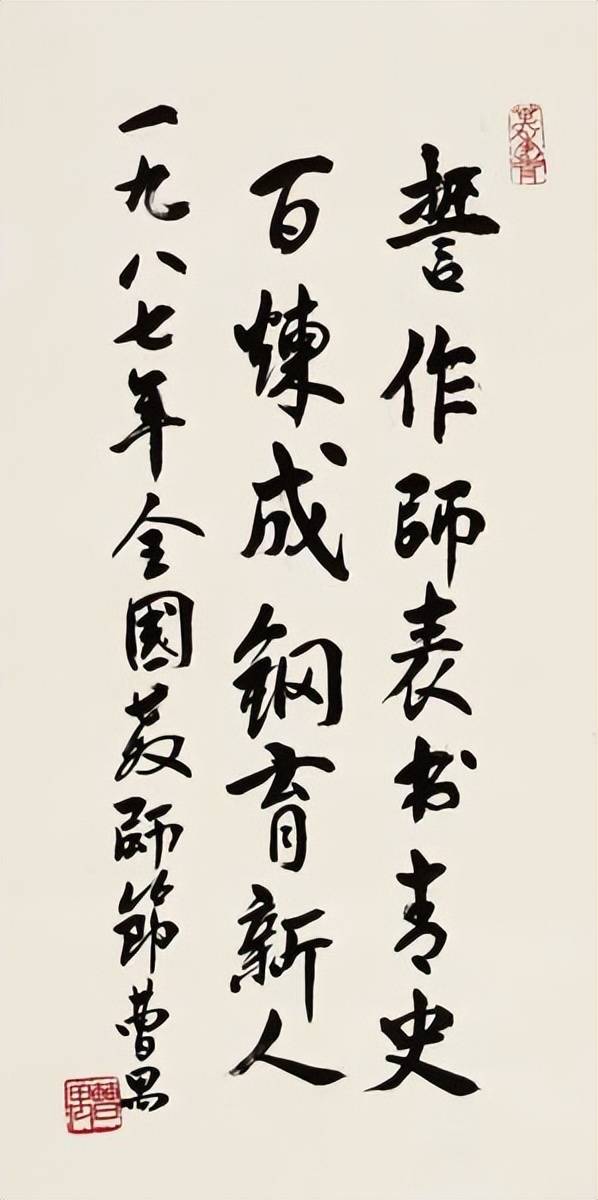 誓作師表书青史
百煉成鋼育新人
一九八七年全國教師節曹禺
曹禺